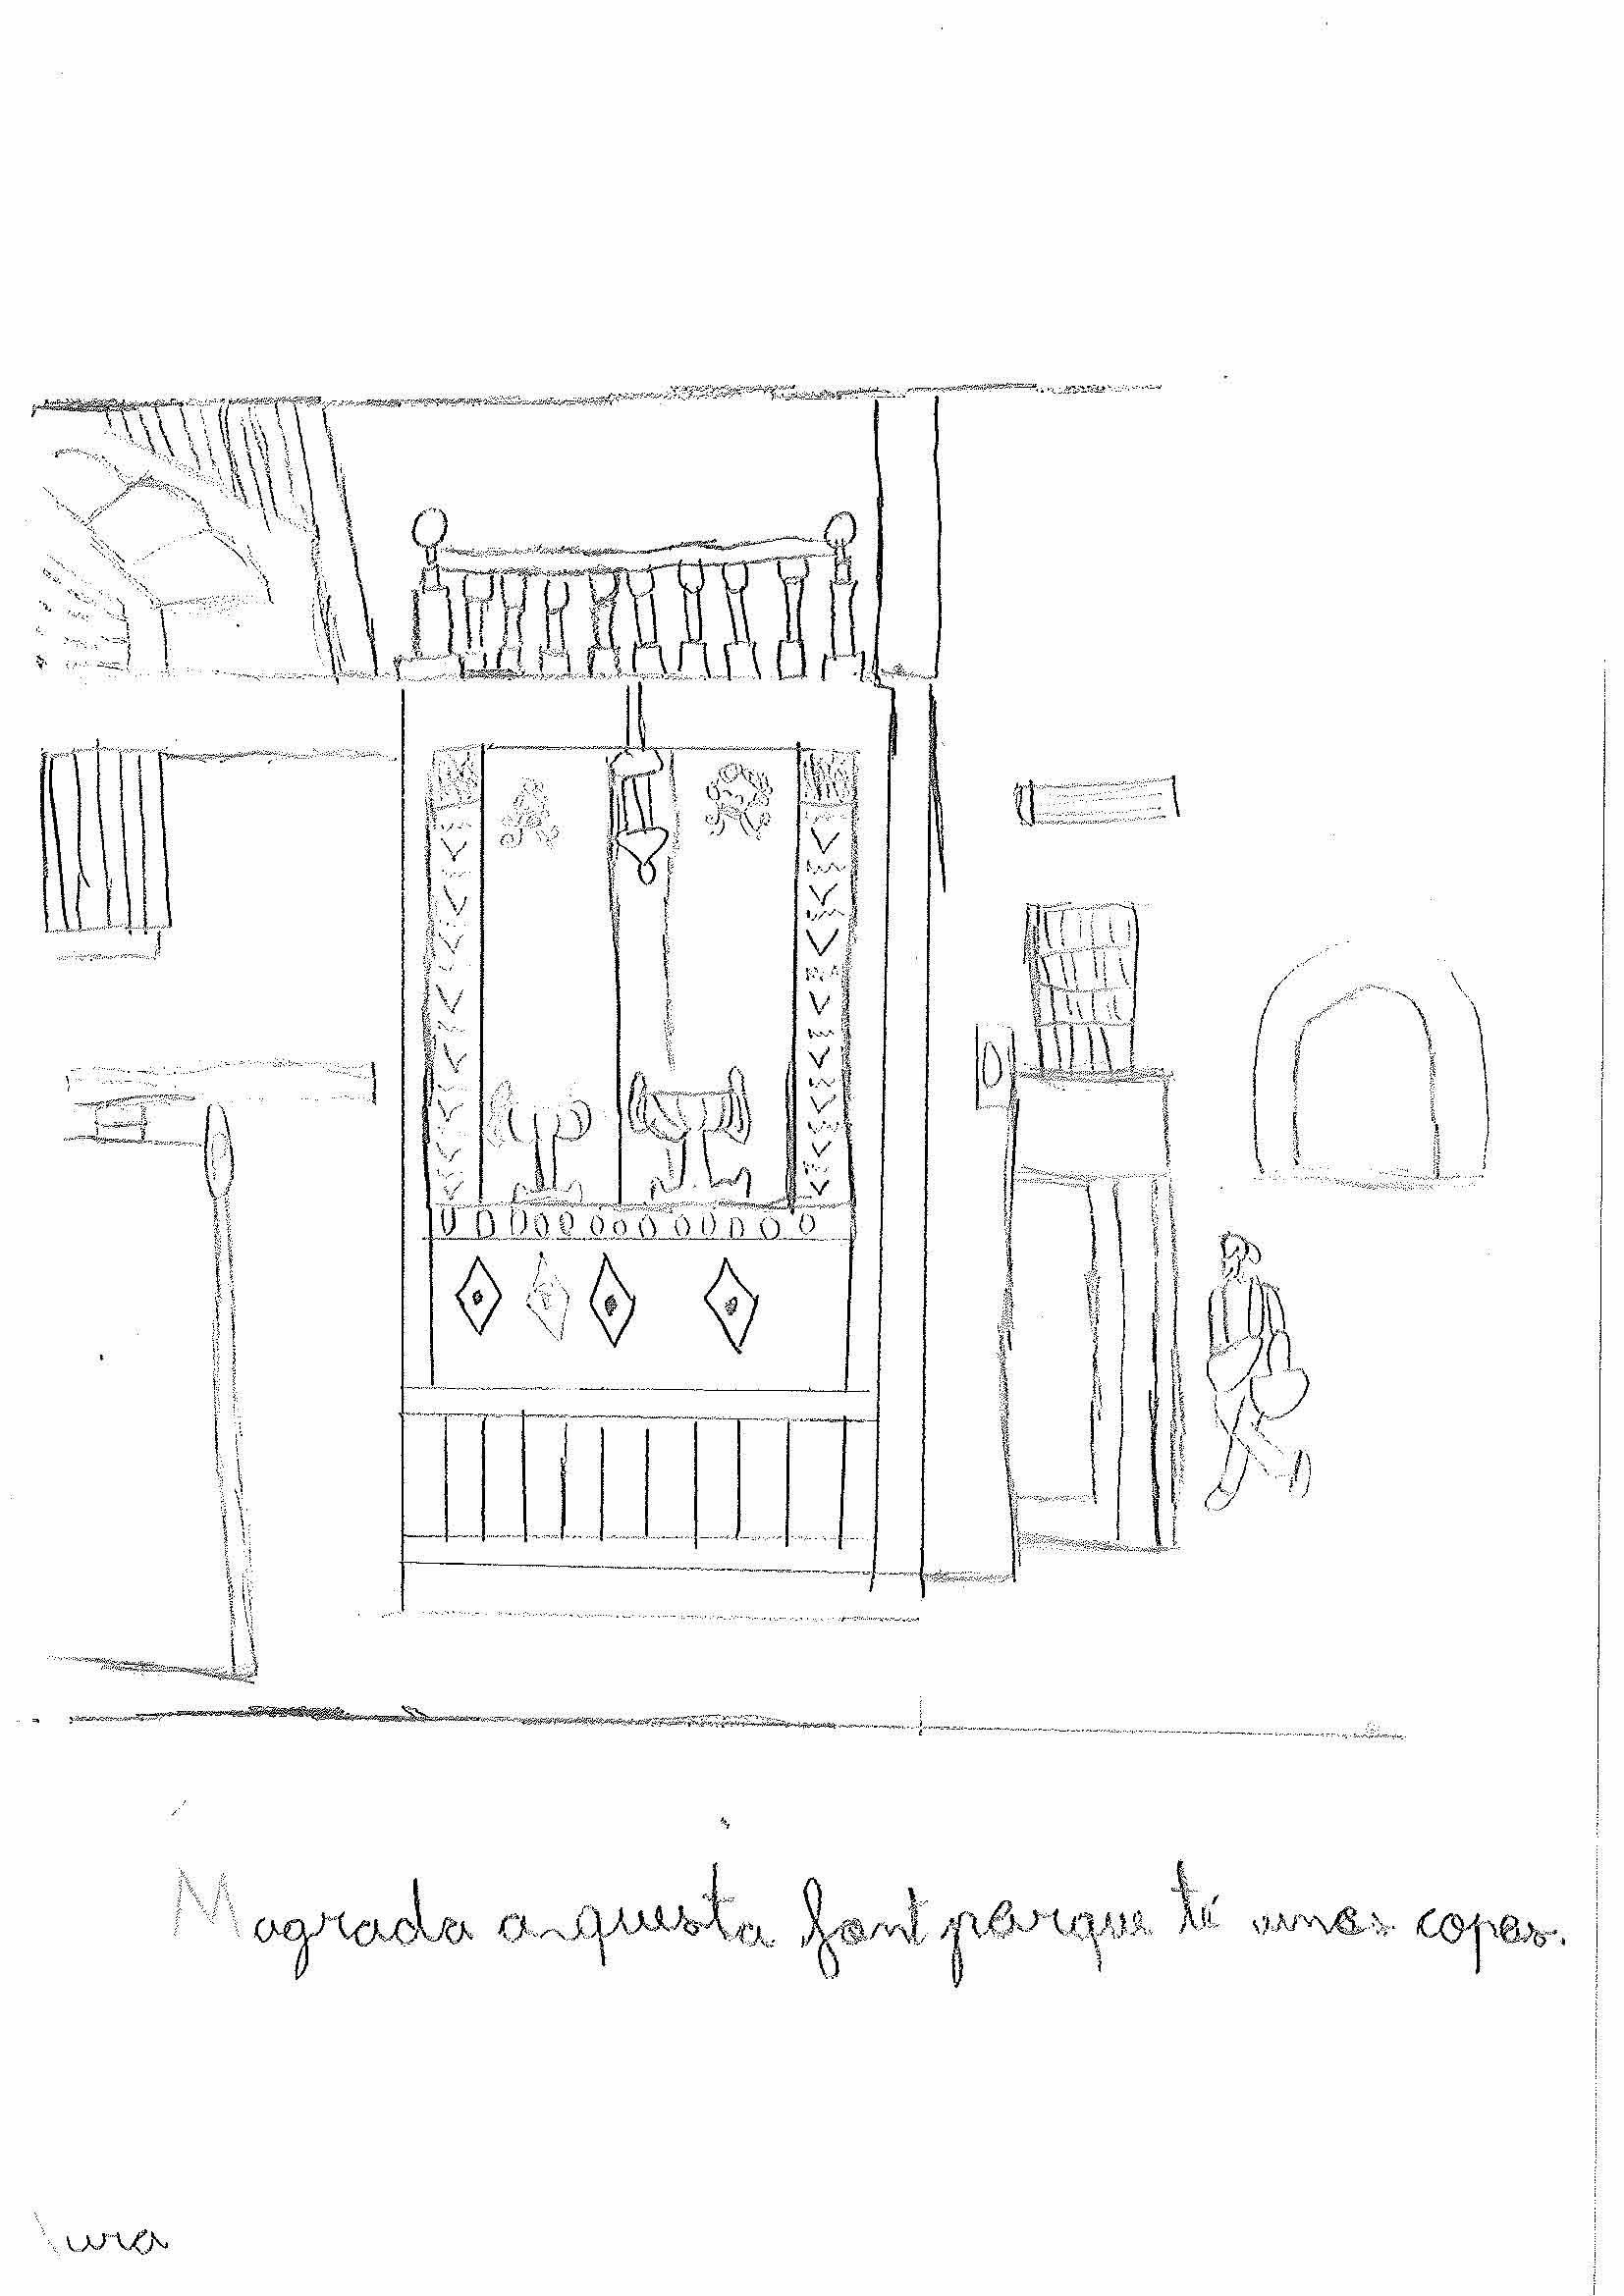 Magrada aquesta font parque té unes copes.